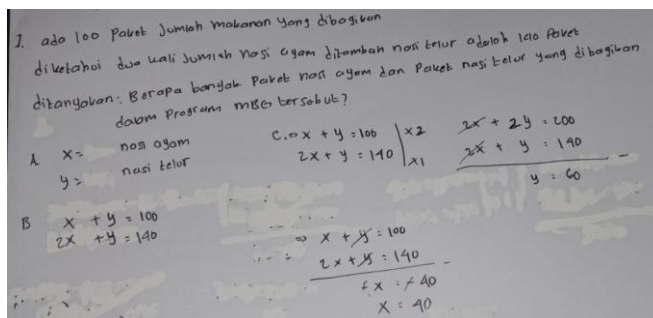 1. ada 100 Paket Jumlah makanan yang dibagikan
diketahui dua kali Jumlah nasi ayam ditambah nasi telur adalah 140 Paket
ditanyakan: Berapa banyak Paket nasi ayam dan Paket nasi telur yang dibagikan
dalam Program MBG tersebut?
A x = nasi ayam
y = nasi telur
B x + y = 100
2x + y = 140
C. => x + y = 100 | x2
2x + y = 140 | x1
2x + 2y = 200
2x + y = 140 -
y = 60
=> x + y = 100
2x + y = 140 -
-x = -40
x = 40